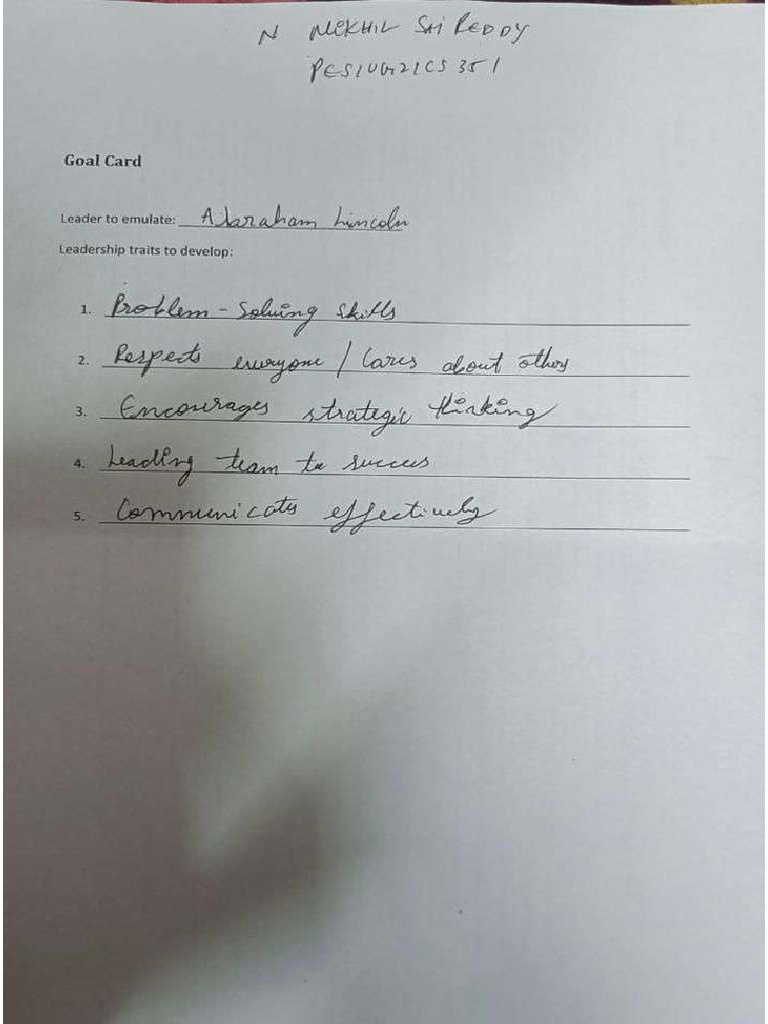 N NIKHIL SAI REDDY
PES1UG21CS351
Goal Card
Leader to emulate: Abraham Lincoln
Leadership traits to develop:
1. Problem-Solving skills
2. Respects everyone / Cares about others
3. Encourages strategic thinking
4. Leading team to succes
5. Communicates effectively